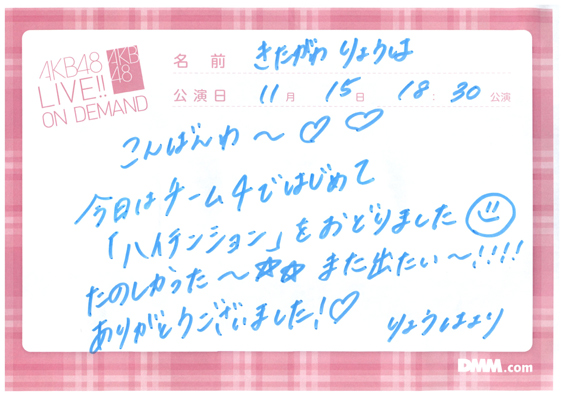 AKB48
LIVE!!
ON DEMAND
AKB
48
名前 きたがわ りょうは
公演日 11月 15日 18:30公演
こんばんわ〜♡♡
今日はチーム4ではじめて
「ハイテンション」をおどりました
たのしかった〜☆☆ また出たい〜!!!!
ありがとうございました!♡
りょうはより
DMM.com